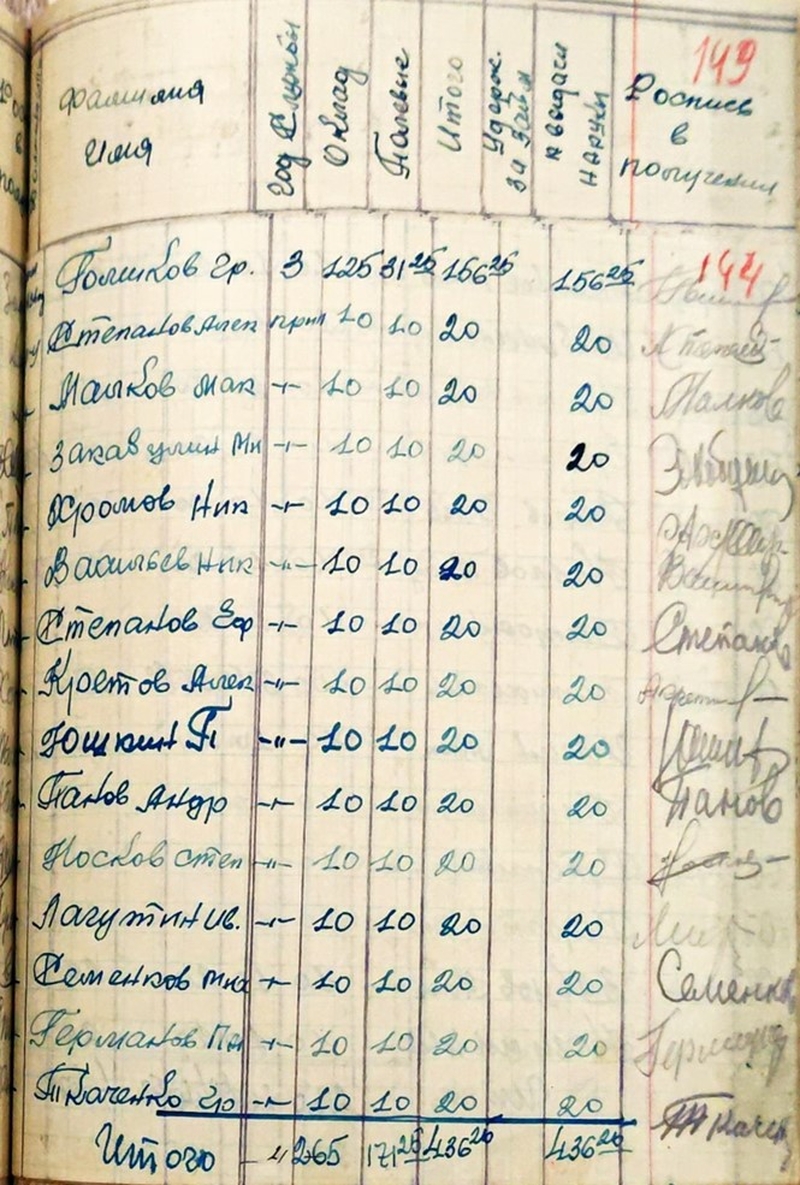 149
Фамилия Имя Год Службы Оклад Полевые Итого Удерж. за заём К выдачи наруки Роспись в получении
144
Голиков Гр. 3 125 31 25 156 25 156 25
Степанов Алек приз 10 10 20 20
Малков Мак -"- 10 10 20 20 Малков
Закавулин Ми -"- 10 10 20 20
Хромов Ник -"- 10 10 20 20
Васильев Ник -"- 10 10 20 20
Степанов Еф -"- 10 10 20 20 Степанов
Кретов Алек -"- 10 10 20 20
Юшкин П -"- 10 10 20 20
Панов Андр -"- 10 10 20 20 Панов
Носков Степ -"- 10 10 20 20
Лагутин Ив. -"- 10 10 20 20
Семенков Миха -"- 10 10 20 20 Семенков
Германов Па -"- 10 10 20 20
Ткаченко Гр -"- 10 10 20 20 Ткачен
Итого -"- 265 171 25 436 20 436 20